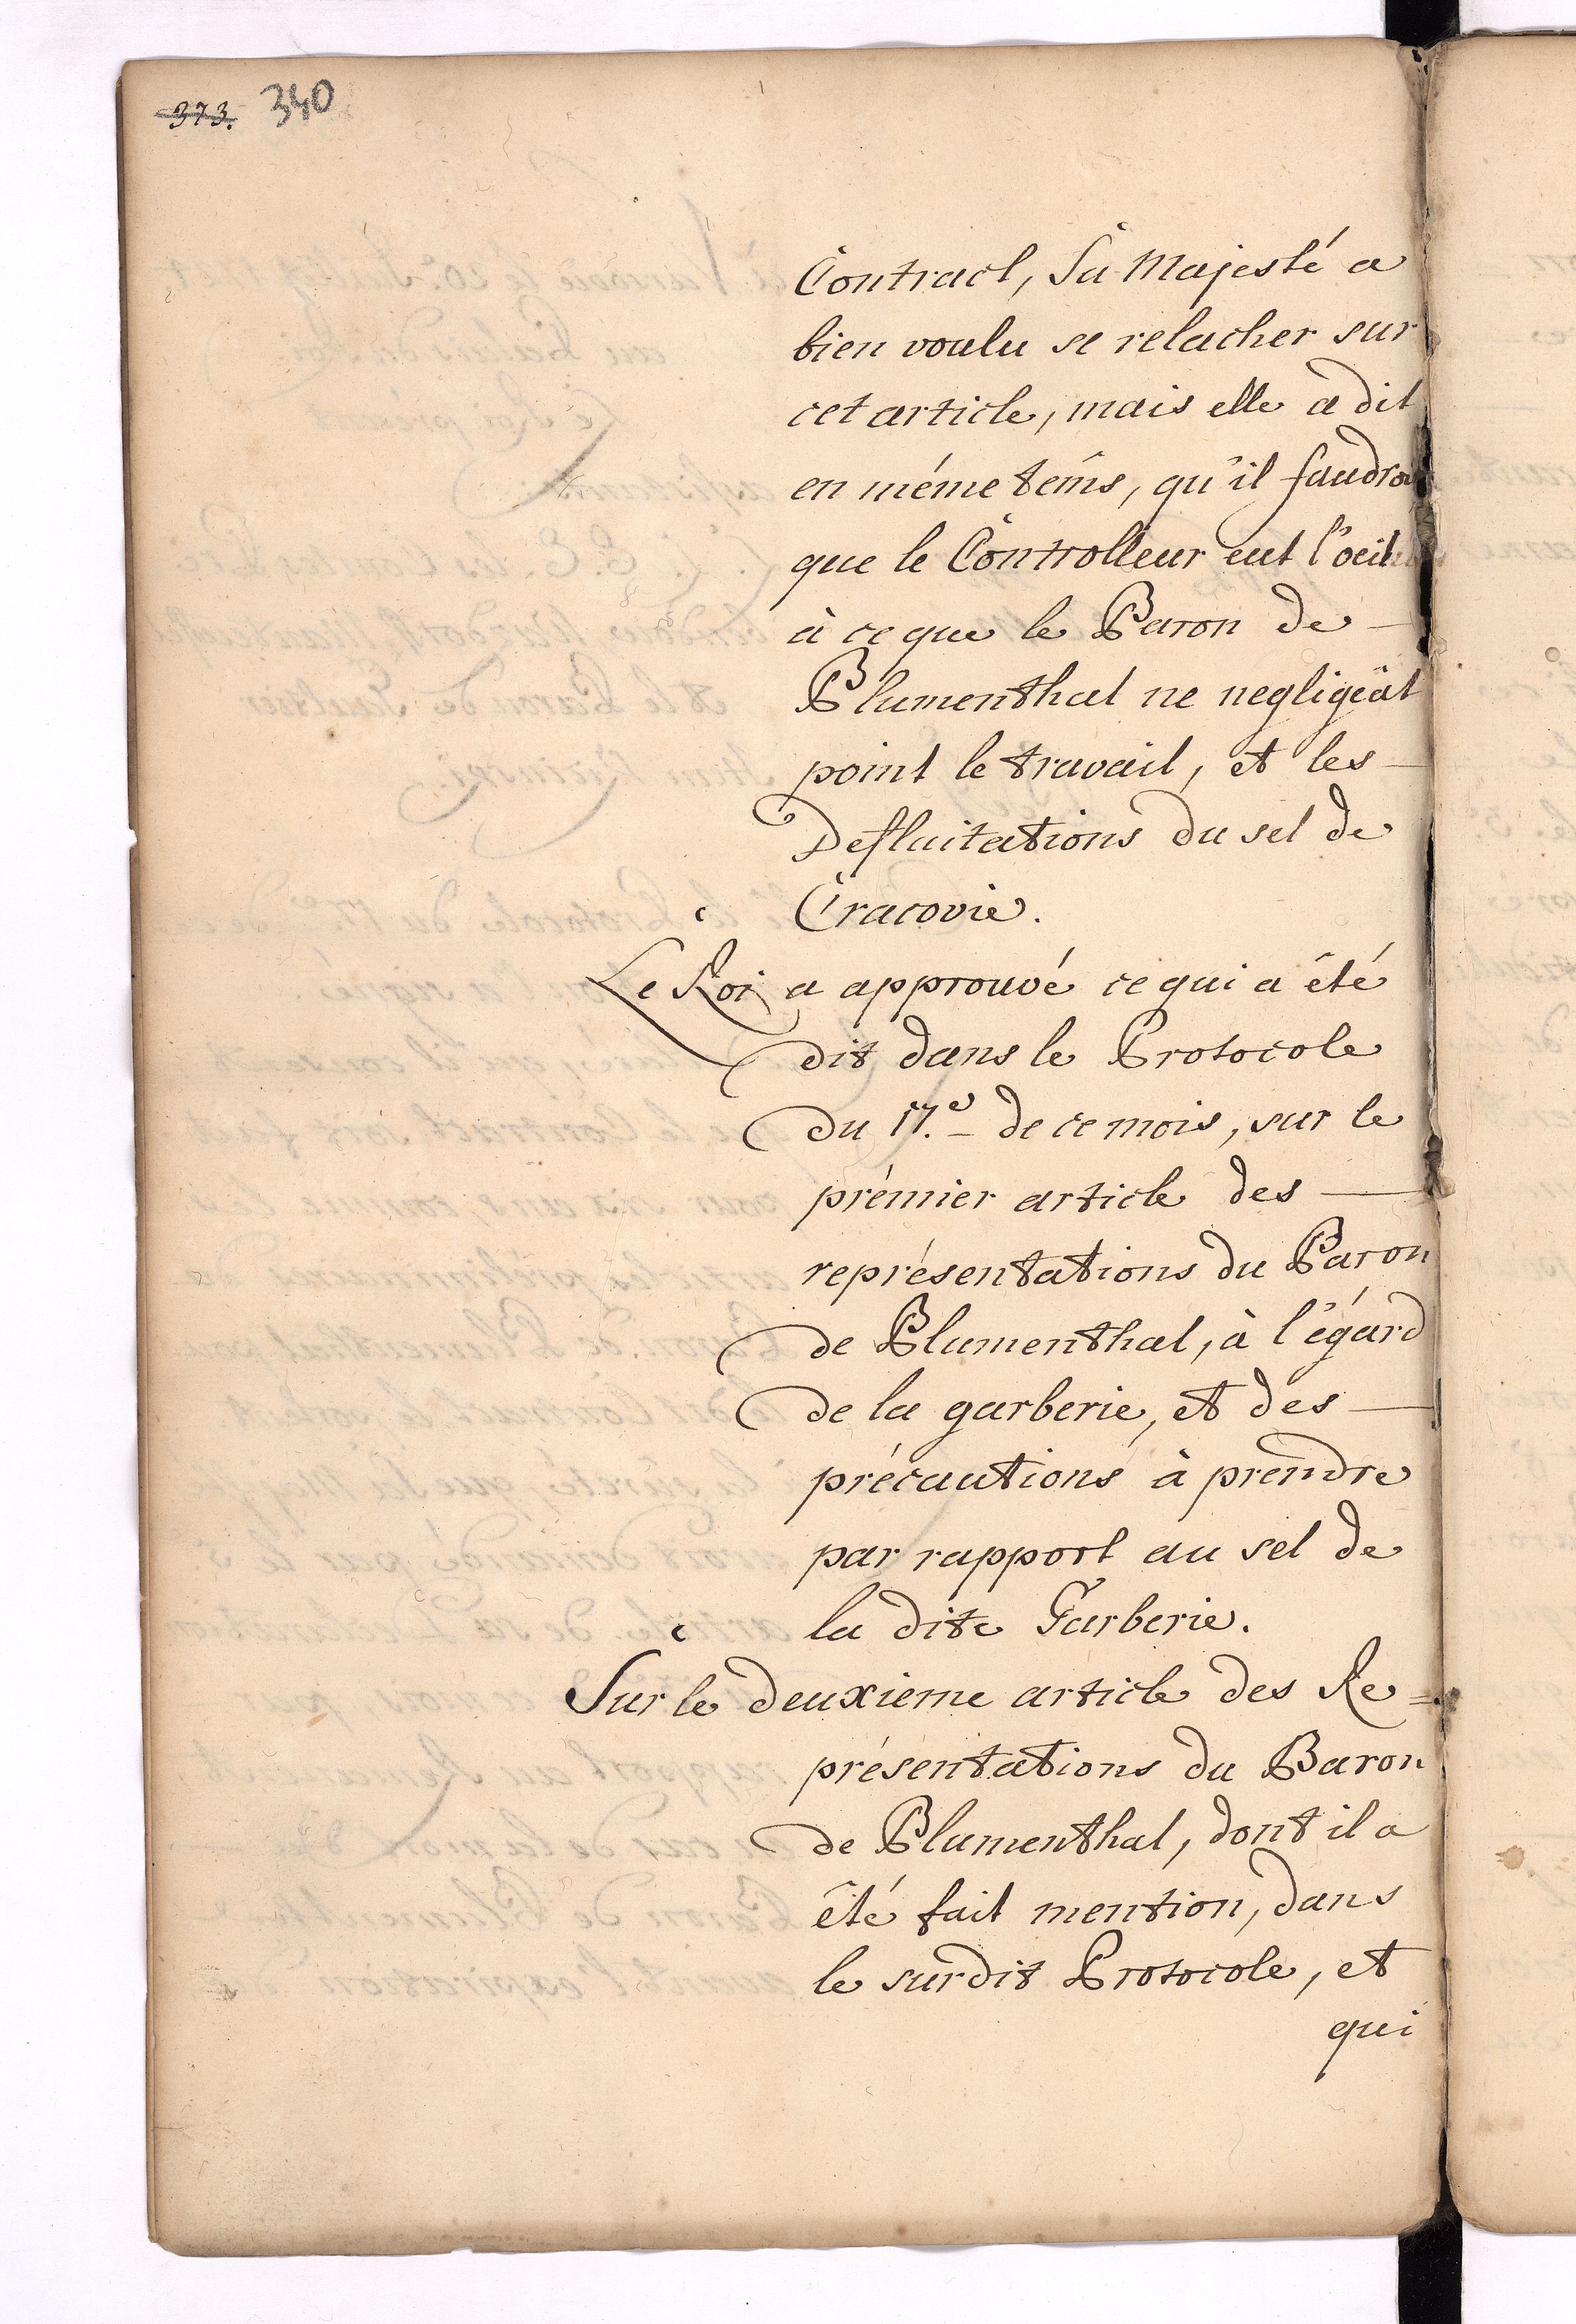 373. 340
Contract, Sa Majesté a
bien voulu se relacher sur
cet article, mais elle a dit
en méme téms, qu'il faudroit
que le Controlleur eut l'oeil
à ce que le Baron de
Blumenthal ne negligeât
point le travail, et les
Defluitations du sel de
Cracovie.
Le Roi a approuvé ce qui a été
dit dans le Protocole
du 17.e de ce mois, sur le
prémier article des
représentations du Baron
de Blumenthal, à l'égard
de la garberie, et des
précautions à prendre
par rapport au sel de
la dite Garberie.
Sur le deuxieme article des Re=
présentations du Baron
de Blumenthal, dont il a
été fait mention, dans
le surdit Protocole, et
qui